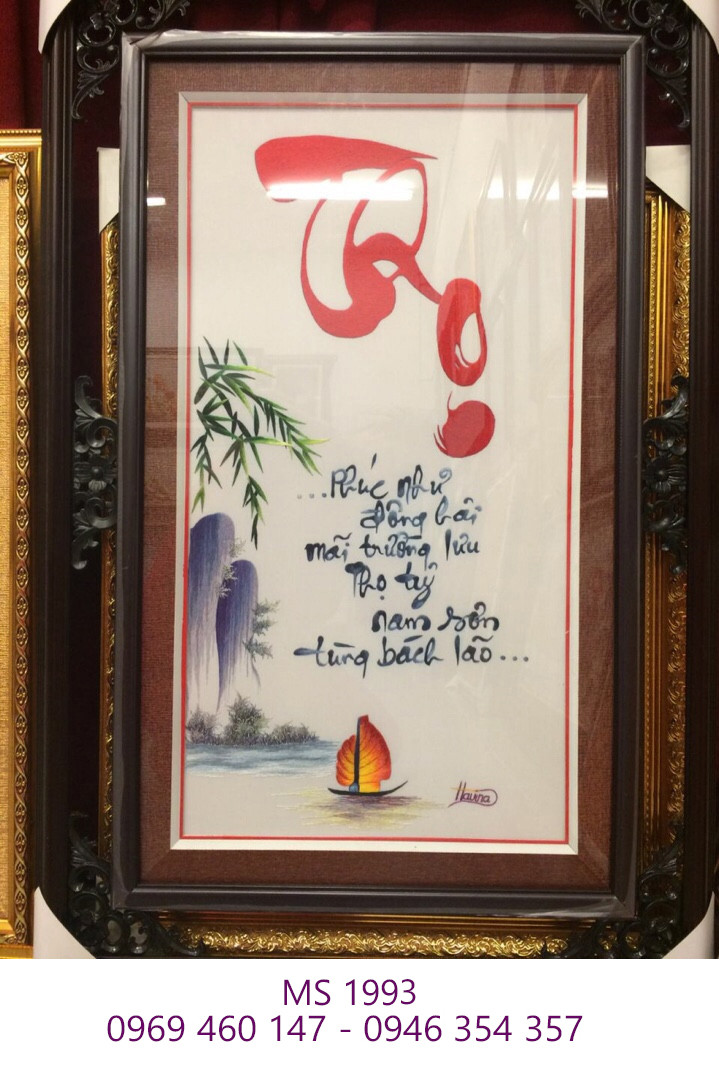 Thọ
...Phúc như
đông hải
mãi trường lưu
Thọ tựỷ
nam sơn
tùng bách lão...
Navina
MS 1993
0969 460 147 - 0946 354 357